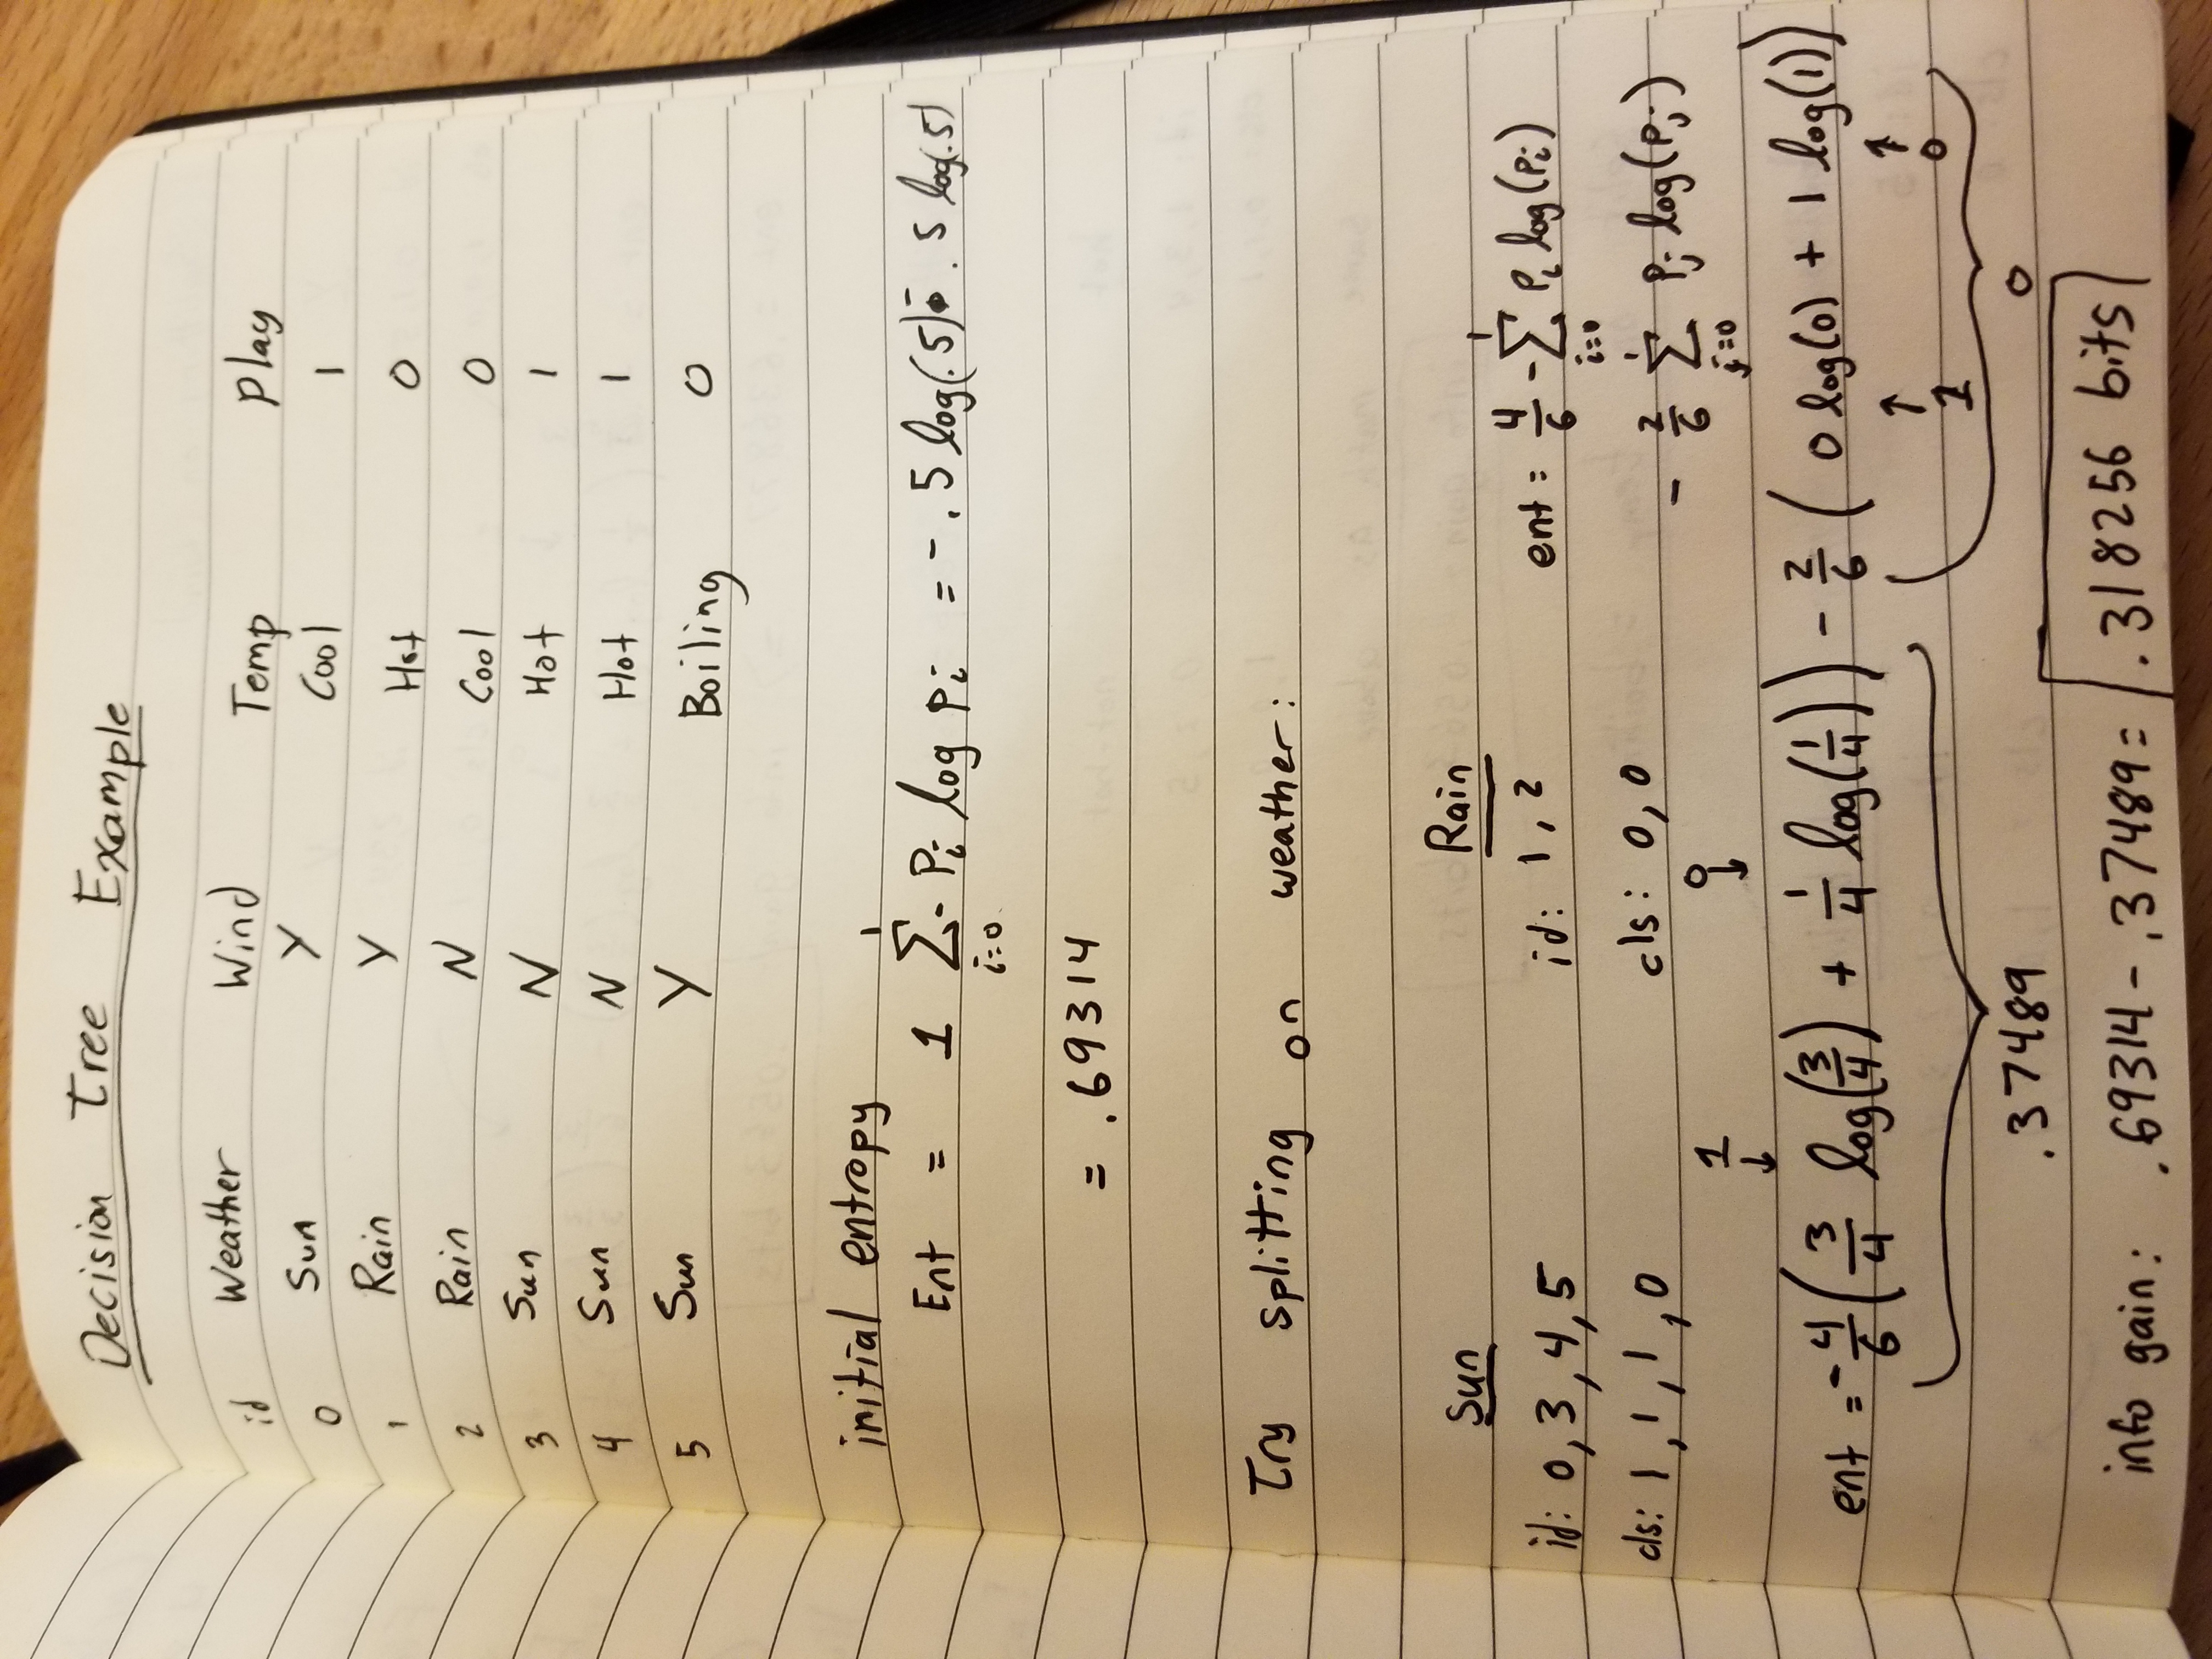 Decision Tree Example
id Weather Wind Temp Play
0 Sun Y Cool 1
1 Rain Y Hot 0
2 Rain N Cool 0
3 Sun N Hot 1
4 Sun N Hot 1
5 Sun Y Boiling 0
initial entropy
Ent = 1 ∑_{i=0}^{1} - P_i log P_i = -.5 log(.5) - .5 log(.5)
= .69314
Try splitting on weather:
Sun Rain
id: 0,3,4,5 id: 1,2 ent = 4/6 -∑_{i=0}^{1} P_i log(P_i)
cls: 1,1,1,0 cls: 0,0 - 2/6 ∑_{j=0}^{1} P_j log(P_j)
1 0
↓ ↓
ent = -4/6 (3/4 log(3/4) + 1/4 log(1/4)) - 2/6 (0 log(0) + 1 log(1))
↑ ↑
1 0
.37489 0
info gain: .69314 - .37489 = .318256 bits